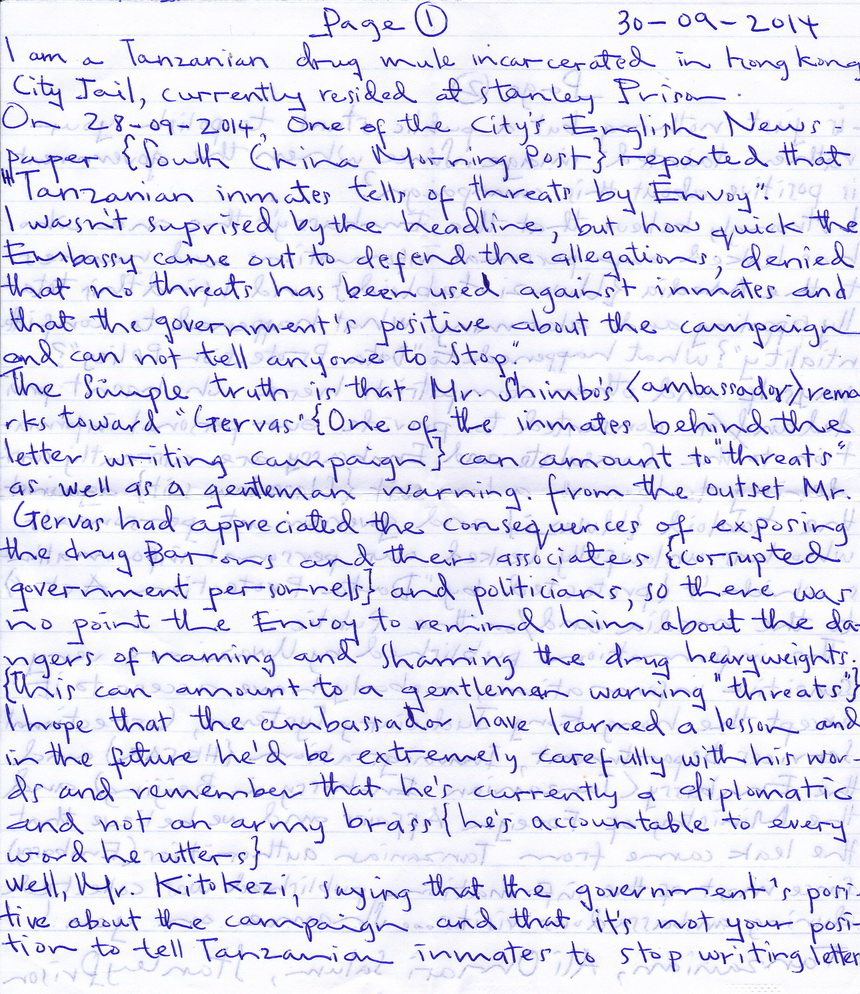 Page 1 30-09-2014
I am a Tanzanian drug mule incarcerated in Hong Kong
City Jail, currently resided at Stanley Prison.
On 28-09-2014, One of the City's English News-
paper {South China Morning Post} reported that
"Tanzanian inmates tells of threats by Envoy".
I wasn't suprised by the headline, but how quick the
Embassy came out to defend the allegations, denied
that no threats has been used against inmates and
that the government's positive about the campaign
and can not tell anyone to stop."
The simple truth is that Mr. Shimbo's <ambassador> rema
rks toward "Gervas" {One of the inmates behind the
letter writing campaign} can amount to "threats"
as well as a gentleman warning. from the outset Mr.
Gervas had appreciated the consequences of exposing
the drug Barrons and their associates {corrupted
government per-sonnels} and politicians, so there was
no point the Envoy to remind him about the da-
ngers of naming and shaming the drug heavyweights.
{this can amount to a gentleman warning "threats"}
I hope that the ambassador have learned a lesson and
in the future he'd be extremely carefully with his wor-
ds and remember that he's currently a diplomatic
and not an army brass {he's accountable to every
word he utters}
Well, Mr. Kitokezi, saying that the government's posi-
tive about the campaign and that it's not your posi-
tion to tell Tanzanian inmates to stop writing letter